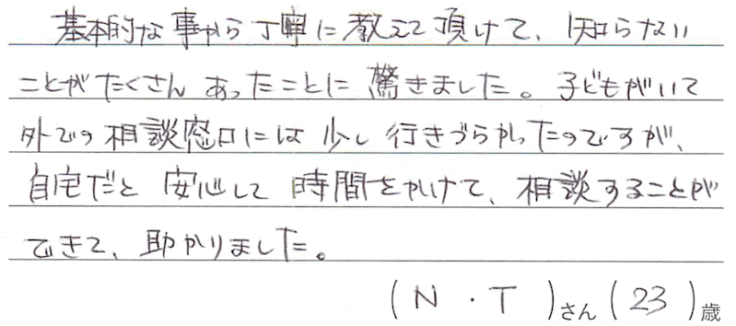 基本的な事から丁寧に教えて頂けて、知らない
ことがたくさんあったことに驚きました。子どもがいて
外での相談窓口には少し行きづらかったのですが、
自宅だと安心して時間をかけて、相談することが
できて、助かりました。
(N・T)さん(23)歳